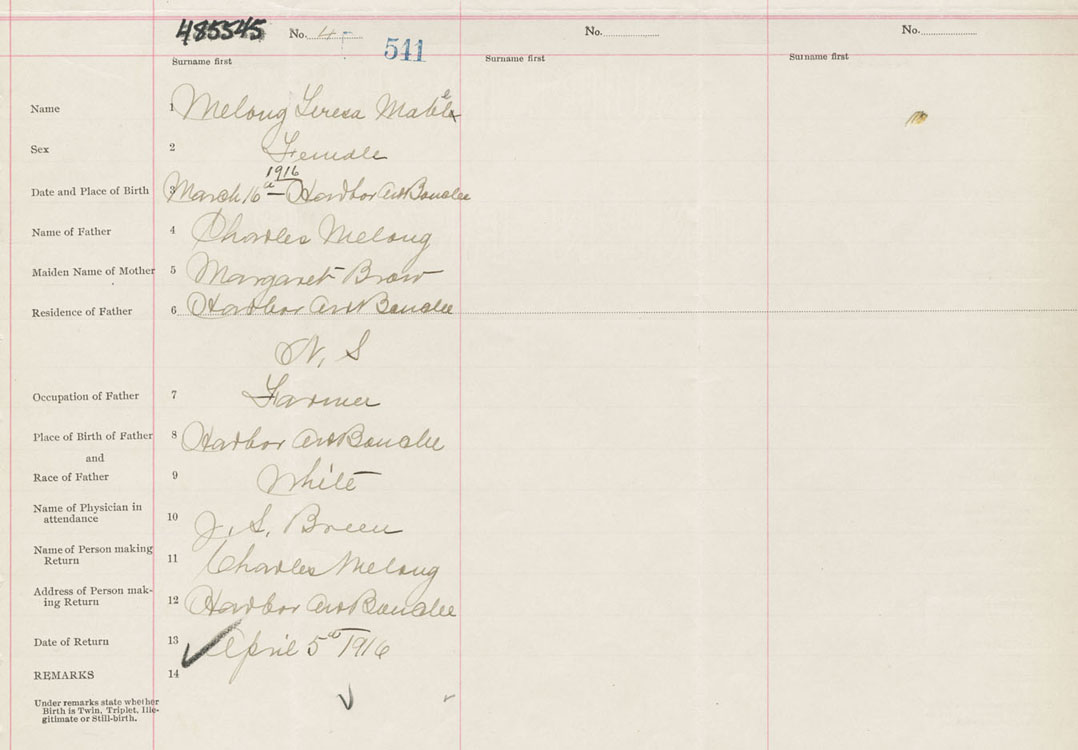 485545 No. 4 541 No. No.
Surname first Surname first Surname first
Name 1 Melong Teresa Mable
Sex 2 Female
1916
Date and Place of Birth 3 March 16th - Harbor Au Bouche
Name of Father 4 Charles Melong
Maiden Name of Mother 5 Margaret Brow
Residence of Father 6 Harbor Au Bouche
N. S
Occupation of Father 7 Farmer
Place of Birth of Father 8 Harbor Au Bouche
and
Race of Father 9 White
Name of Physician in
attendance 10 J. S. Breen
Name of Person making
Return 11 Charles Melong
Address of Person mak-
ing Return 12 Harbor Au Bouche
Date of Return 13 April 5th 1916
REMARKS 14
Under remarks state whether
Birth is Twin, Triplet, Ille-
gitimate or Still-birth.